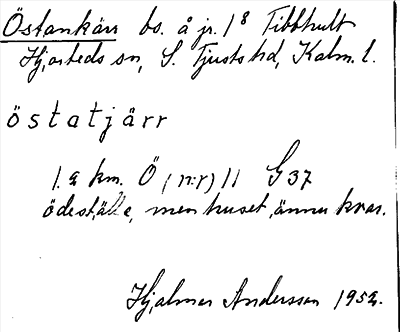 Östankärr bs. å jr. 1⁸ Tibbhult
Hjorteds sn, S. Tjusts hd, Kalm. l.
östatjärr
1.2 km. Ö (n:r) 11 G37
ödeställe, men huset ännu kvar.
Hjalmar Andersson 1952.